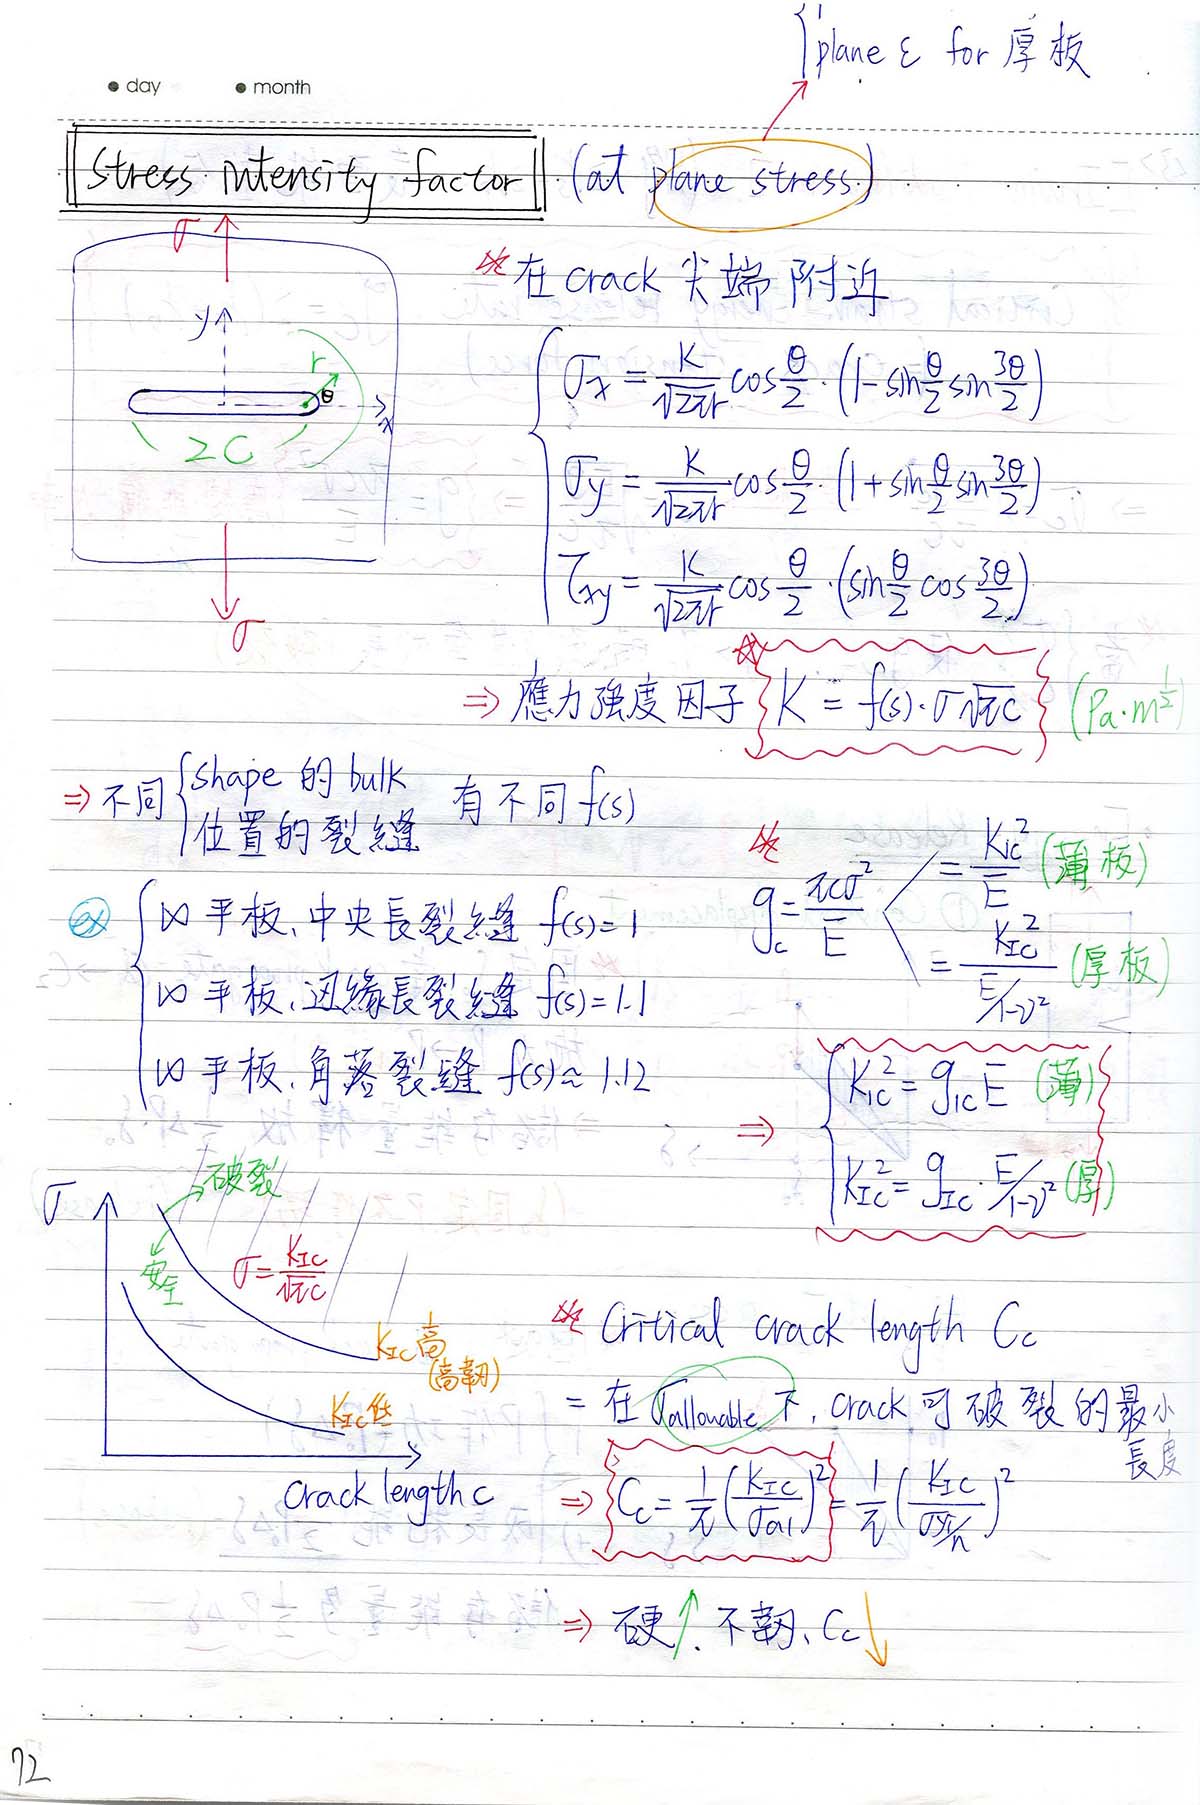 plane ε for 厚板
day month
Stress intensity factor (at plane stress)
σ
y
r
θ
x
2C
σ
在 crack 尖端附近
σx = K/√2πr cos θ/2 · (1 - sin θ/2 sin 3θ/2)
σy = K/√2πr cos θ/2 · (1 + sin θ/2 sin 3θ/2)
τxy = K/√2πr cos θ/2 · (sin θ/2 cos 3θ/2)
⇒ 應力強度因子 K = f(s)·σ√πc (Pa·m^1/2)
⇒ 不同 { shape 的 bulk
位置的裂縫 有不同 f(s)
ex ∞ 平板、中央長裂縫 f(s)=1
∞ 平板、边緣長裂縫 f(s)=1.1
∞ 平板、角落裂縫 f(s)≈1.12
gc = πcσ²/E
= K1c²/E (薄板)
= KIc²/(E/1-ν²) (厚板)
⇒ K1c² = g1c E (薄)
KIc² = gIc · E/1-ν² (厚)
σ
破裂
安全
σ = KIc/√πc
KIc 高
(高韌)
KIc 低
crack length c
Critical crack length Cc
= 在 σallowable 下, crack 可破裂的最小
長度
⇒ Cc = 1/π (KIc/σal)² = 1/π (KIc/σy/n)²
⇒ 硬↑、不韌、Cc↓
72